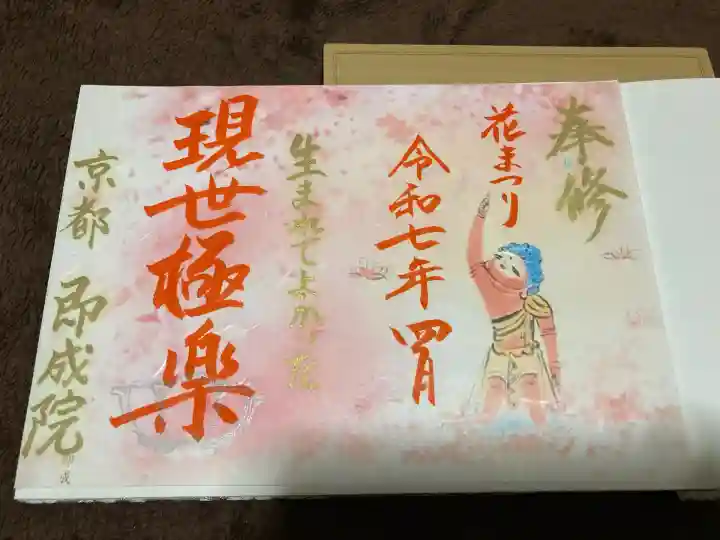 奉修
花まつり
令和七年四月
生まれてよかった
現世極楽
京都 即成院